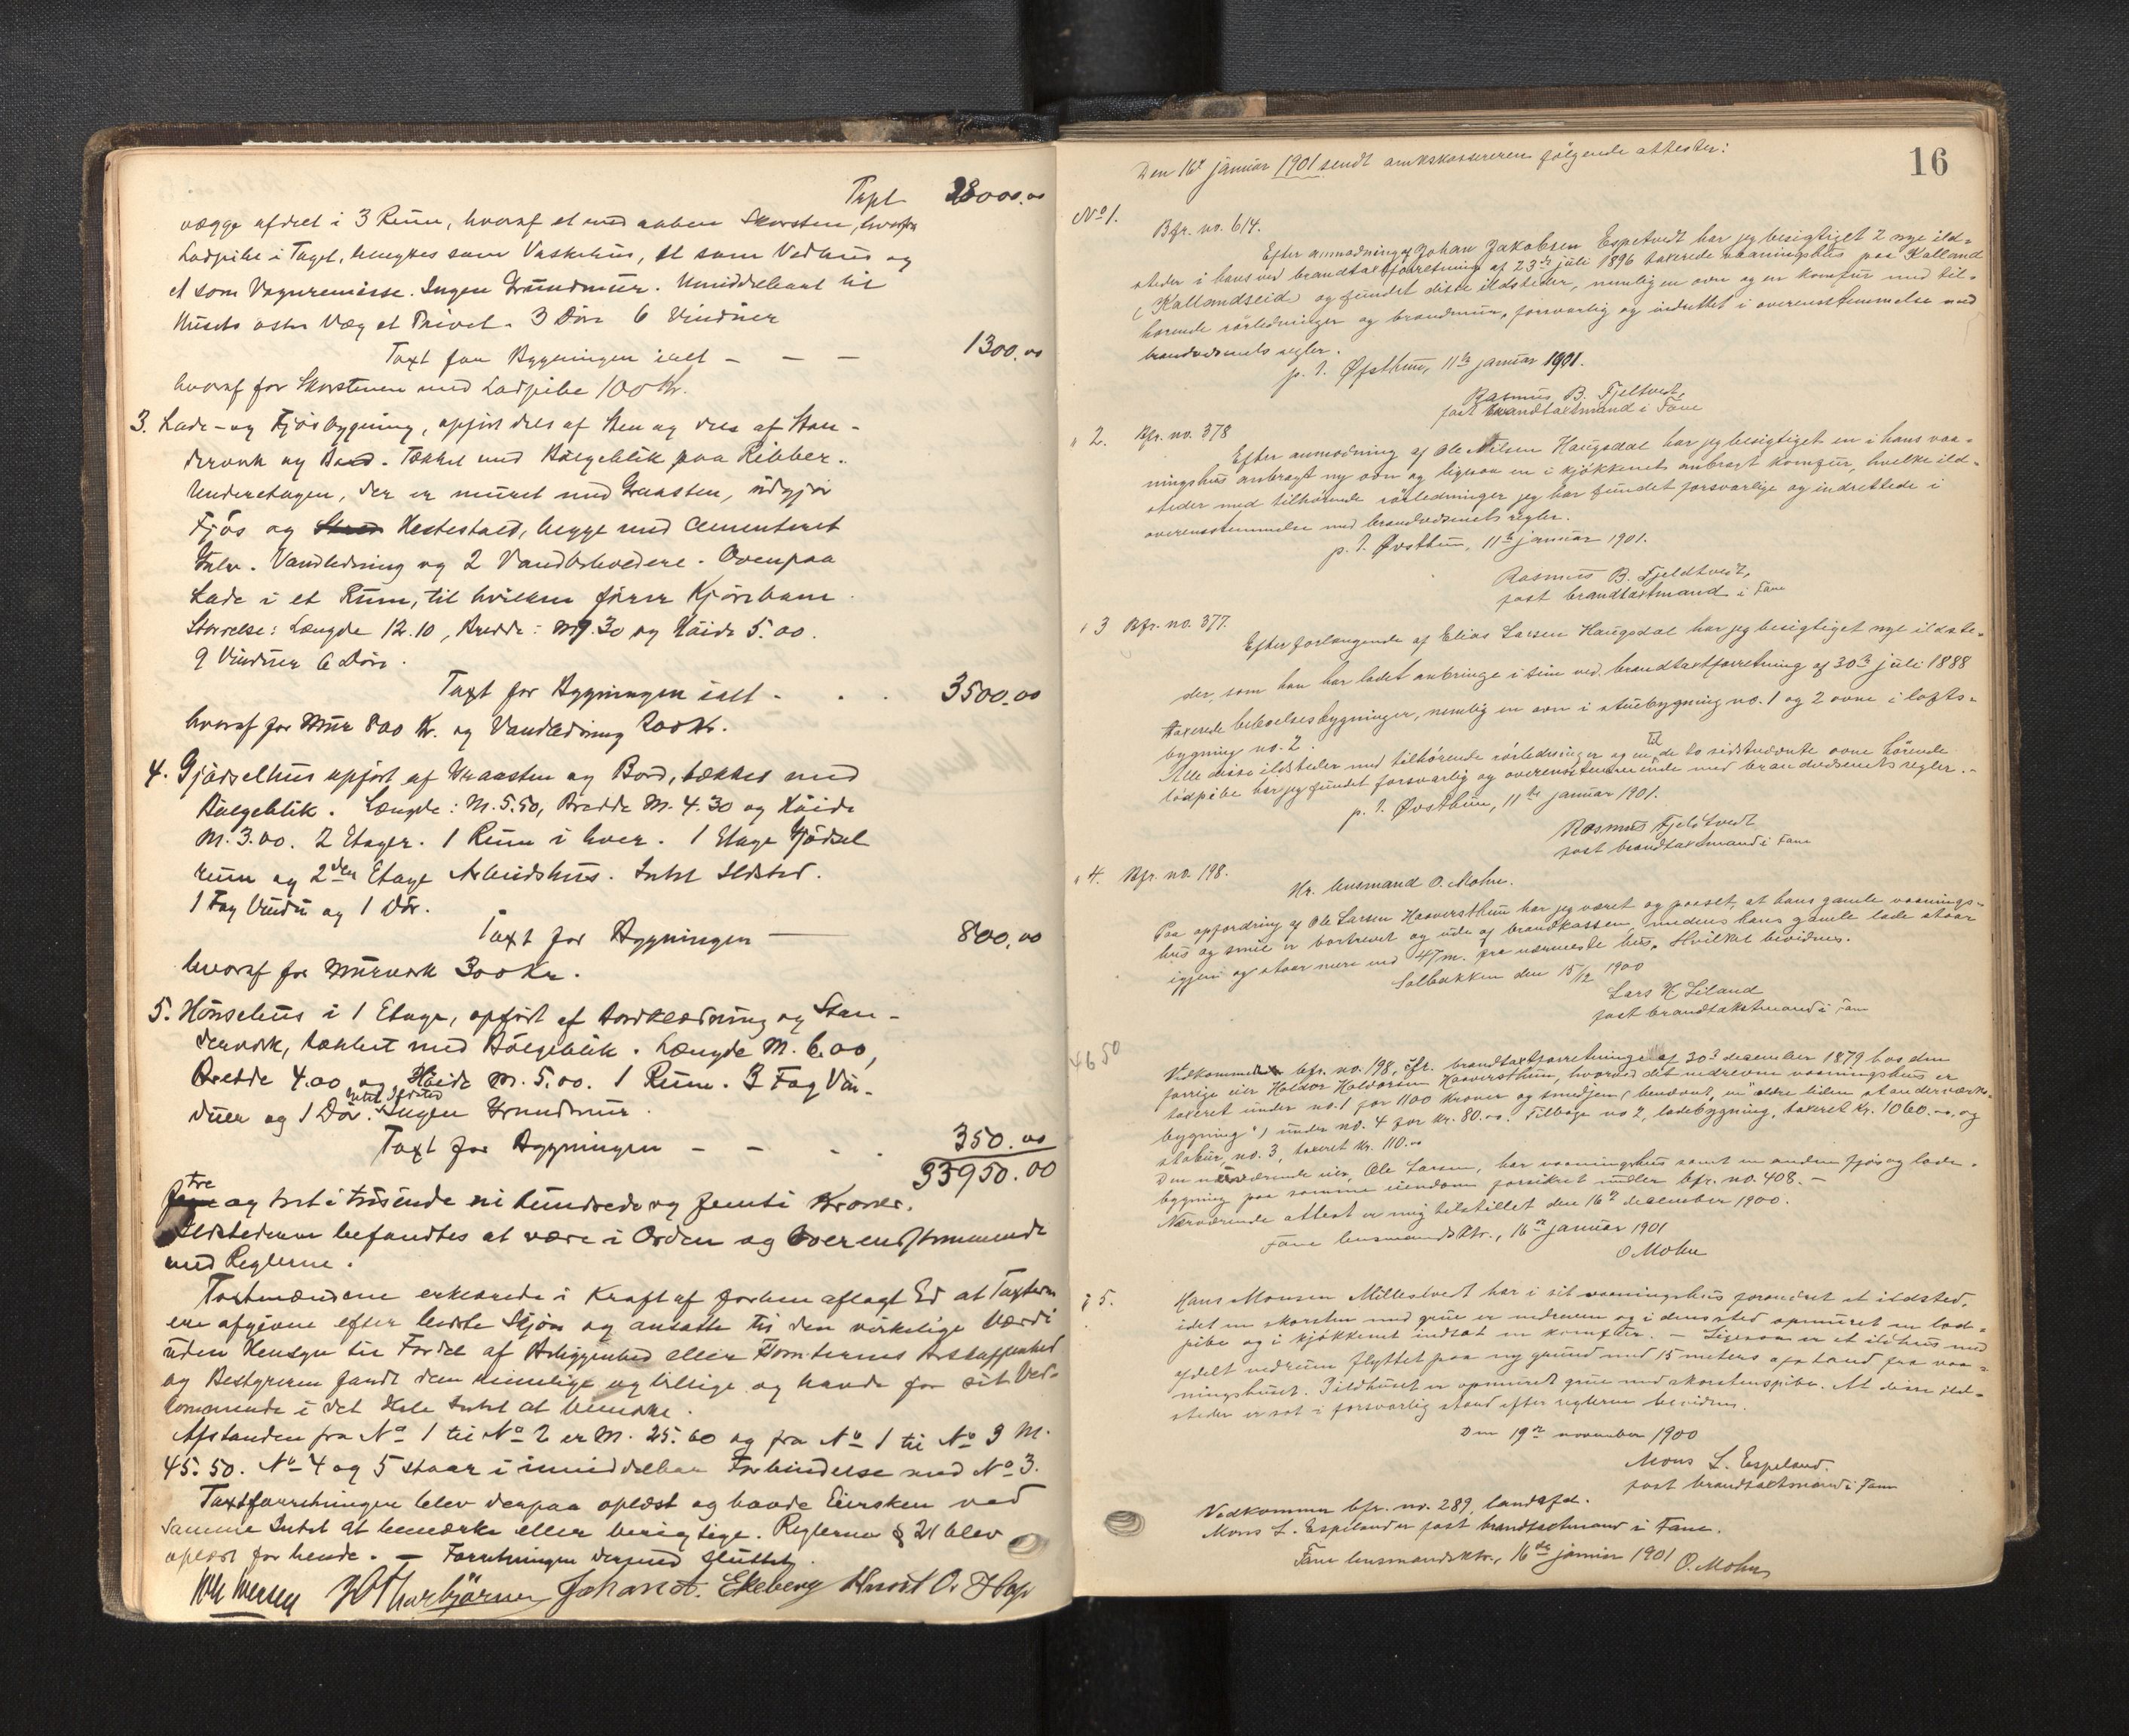 Taxt 28000.00
vægge afdelt i 3 Rum, hvoraf et med aaben Skorsten, hvorfra
Ladpibe i Taget, benyttes som Vaskehus, et som Vedhus og
et som Vognremisse. Ingen Grundmur. Umiddelbart til
Husets østre Væg et Privet. 3 Døre 6 Vinduer
Taxt for Bygningen ialt - - - 1300.00
hvoraf for Skorstenen med Ladpibe 100 Kr.
3. Lade- og Fjøsbygning, opført dels af Sten og dels af Stan-
derverk og Bord. Tækket med Bølgeblik paa Ribber.
Underetagen, der er muret med Graasten, udgjør
Fjøs og Hestestald, begge med Cementeret
Gulv. Vandledning og 2 Vandbeholdere. Ovenpaa
Lade i et Rum, til hvilken fører Kjørebane.
Størrelse: Længde 12.10, Bredde: 9.30 og Høide 5.00.
9 Vinduer 6 Døre.
Taxt for Bygningen ialt - . . 3500.00
hvoraf for Mur 800 Kr. og Vandledning 200 Kr.
4. Gjødselhus opført af Graasten og Bord, tækket med
Bølgeblik. Længde: M. 5.50, Bredde M. 4.30 og Høide
M. 3.00. 2 Etager. 1 Rum i hver. 1 Etage Gjødsel
rum og 2den Etage Arbeidshus. Intet Ildsted.
1 Fag Vindu og 1 Dør.
Taxt for Bygningen — 800.00
hvoraf for Murverk 300 Kr.
5. Hønsehus i 1 Etage, opført af Bordklædning og Stan-
derverk, tækket med Bølgeblik. Længde M. 6.00,
Bredde 4.00 og Høide M. 5.00. 1 Rum. 3 Fag Vin-
duer og 1 Dør. Intet Ildsted Ingen Grundmur.
Taxt for Bygningen - - . . 350.00
33950.00
tre og treti tusende ni hundrede og femti Kroner.
Ildstederne befandtes at være i Orden og Overensstemmende
med Reglerne.
Taxtmændene erklærede i Kraft af forhen aflagt Ed at Taxterne
ere afgivne efter bedste Skjøn og ansatte til den virkelige Værdi
uden Hensyn til Fordel af Beliggenhed eller Tomternes Beskaffenhed
og Bestyreren fandt dem rimelige og billige og havde for sit Ved-
kommende i det Hele Intet at bemerke.
Afstanden fra No 1 til No 2 er M. 25.60 og fra No 1 til No 3 M.
45.50. No 4 og 5 staar i umiddelbar Forbindelse med No 3.
Taxtforretningen blev derpaa oplæst og havde Eiersken ved
samme Intet at bemærke eller berigtige. Reglernes § 21 blev
oplæst for hende. — Forretningen dermed sluttet.
Johan A. Ekeberg Knut O. Hop
16
Den 16de januar 1901 sendt amtskassereren følgende attester:
No 1.
Bfr. no. 614.
Efter anmodning af Johan Jakobsen Espetvedt har jeg besigtiget 2 nye ild-
steder i hans ved brandtaxtforretning af 23de juli 1896 taxerede vaaningshus paa Kalland
(Kallandseid) og fundet disse ildsteder, nemlig en ovn og en komfur med til-
hørende rørledninger og brandmur, forsvarlig og indrettet i overensstemmelse med
brandvæsenets regler.
p. t. Øfsthun, 11te januar 1901.
Rasmus B. Fjeltvedt,
fast brandtaxtmand i Fane
" 2. Bfr. no. 378
Efter anmodning af Ole Nilsen Haugsdal har jeg besigtiget en i hans vaa-
ningshus anbragt ny ovn og ligesaa en i kjøkkenet anbragt komfur, hvilke ild-
steder med tilhørende rørledninger jeg har fundet forsvarlige og indrettede i
overensstemmelse med brandvæsenets regler.
p. t. Øvsthun, 11te januar 1901.
Rasmus B. Fjeldtvedt,
fast brandtaxtmand i Fane
" 3 Bfr. no. 377.
Efter forlangende af Elias Larsen Haugsdal har jeg besigtiget nye ildste-
der, som han har ladet anbringe i sine ved brandtaxtforretning af 30te juli 1888
taxerede beboelsesbygninger, nemlig en ovn i stuebygning no. 1 og 2 ovne i lofts-
bygning no. 2.
Alle disse ildsteder med tilhørende rørledninger og en til de to sidstnævnte ovne hørende
lødpibe har jeg fundet forsvarlig og overensstemmende med brandvæsenets regler. -
p. t. Øvsthun, 11te januar 1901.
Rasmus Fjeldtvedt
fast brandtaxtmand i Fane
" 4. Bfr. no. 198.
Hr. lensmand O. Mohn.
Paa opfordring af Ole Larsen Haaversthun har jeg været og paaset, at hans gamle vaanings-
hus og smie er bortrevet og ude af brandkassen, medens hans gamle lade staar
igjen og staar mere end 47 m. fra nærmeste hus. Hvilket bevidnes.
Solbakken den 15/12 1900
Lars H Liland
fast brandtakstmand i Fane
46 50
Vedkommer bfr. no. 198, cfr. brandtaxtforretninge af 30te desember 1879 hos den
forrige eier Haldor Haldorsen Haaversthun, hvorved det nedrevne vaaningshus er
taxeret under no. 1 for 1100 kroner og smedjen (benævnt „en ældre liden standerværks-
bygning") under no. 4 for kr. 80.00. Tilbage no 2, ladebygning, taxeret kr. 1060.00, og
stabur, no. 3, taxeret kr. 110.00
Den nuværende eier, Ole Larsen, har vaaningshus samt en anden fjøs og lade-
bygning paa samme eiendom forsikret under bfr. no. 408. -
Nærværende attest er mig tilstillet den 16de desember 1900.
Fane lensmandsktr., 16de januar 1901
O Mohn
" 5.
Hans Monsen Milleslvedt har i sit vaaningshus forandret et ildsted,
idet en skorsten med grue er nedreven og i dens sted opmuret en lad-
pibe og i kjøkkenet indsat en komfur. — Ligesaa er et ildhus med
afdelt vedrum flyttet paa ny grund med 15 meters afstand fra vaa-
ningshuset. I ildhuset er opmuret grue med skorstenspibe. At disse ild-
steder er sat i forsvarlig stand efter reglerne bevidnes.
Den 19de november 1900
Mons L. Espeland.
fast brandtaxtmand i Fane
Vedkommer bfr. no. 289, landsfd.
Mons L. Espeland er fast brandtaxtmand i Fane.
Fane lensmandsktr., 16de januar 1901 O. Mohn